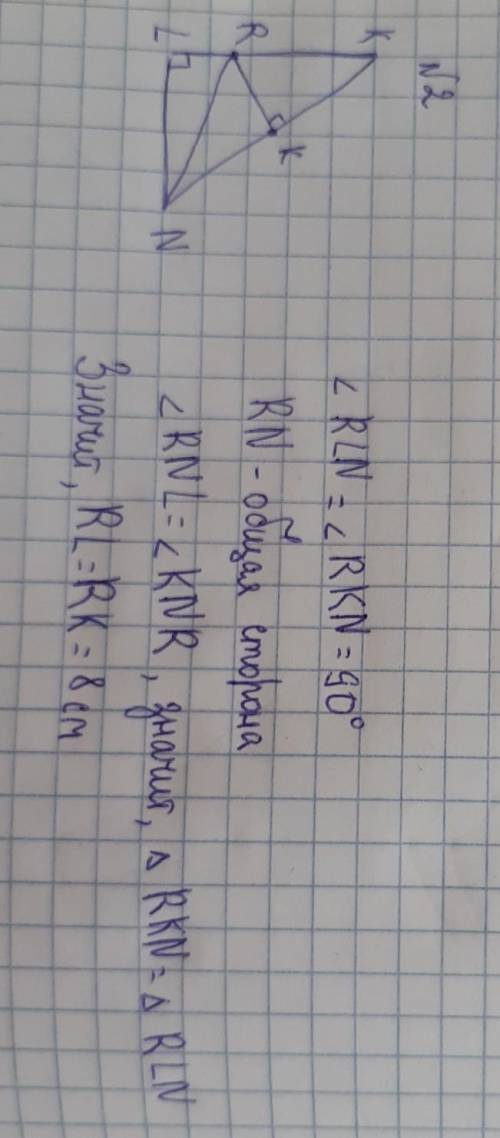 №2
L R K
K
N
∠ RLN = ∠ RKN = 90°
RN - общая сторона
∠ RNL = ∠ KNR, значит, △ RKN = △ RLN
Значит, RL = RK = 8 см